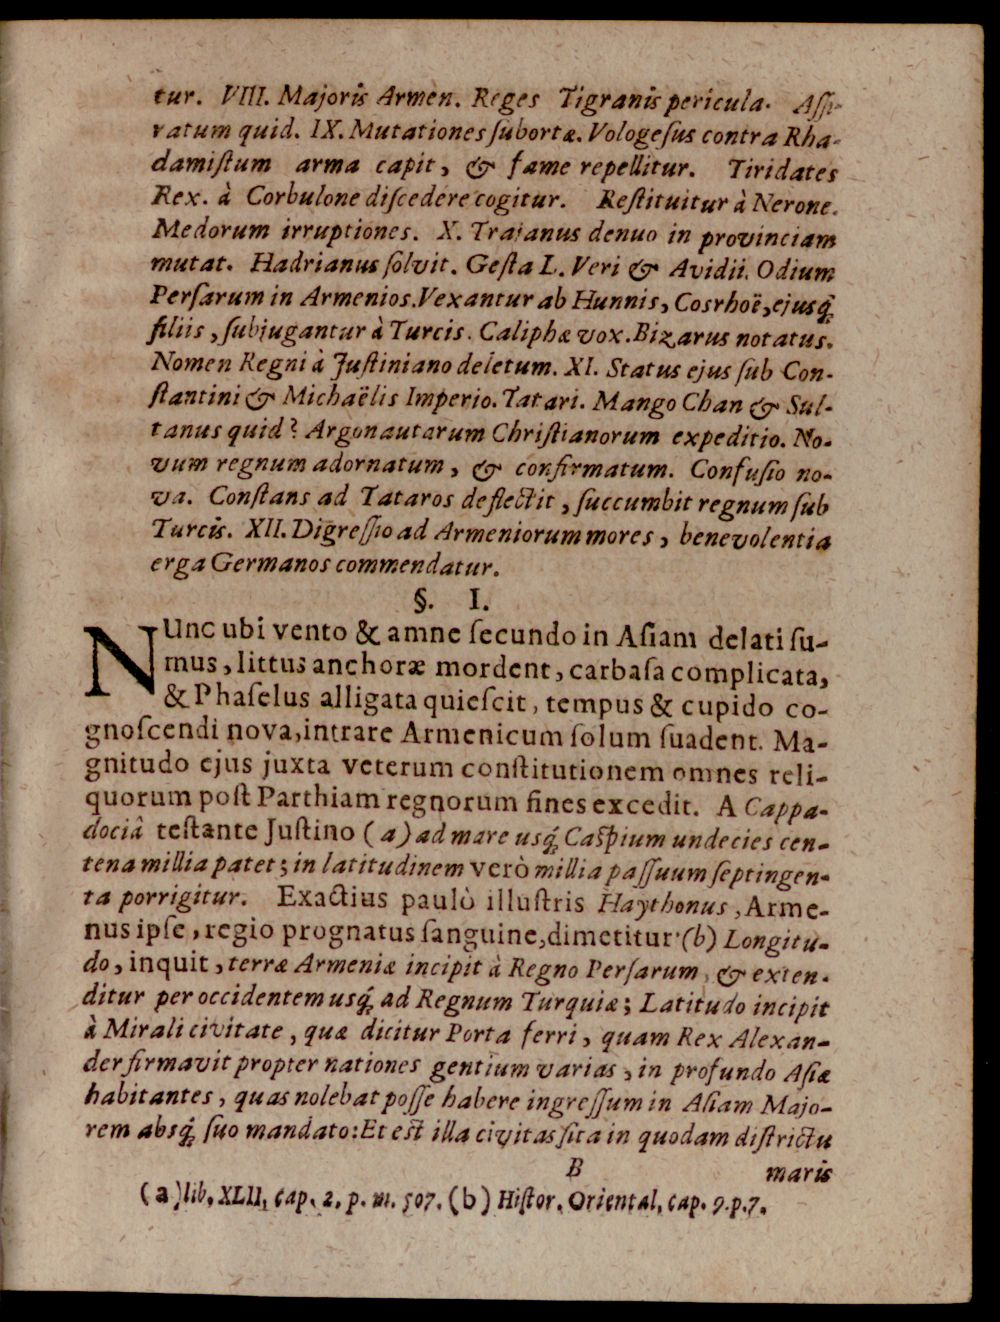 tur. VIII. Majoris Armen. Reges Tigranis pericula. Aſſi-
ratum quid. IX. Mutationes ſubortæ. Vologeſus contra Rha-
damiſtum arma capit, & fame repellitur. Tiridates
Rex. à Corbulone diſcedere cogitur. Reſtituitur à Nerone.
Medorum irruptiones. X. Traianus denuo in provinciam
mutat. Hadrianus ſolvit. Geſta L. Veri & Avidii. Odium
Perſarum in Armenios. Vexantur ab Hunnis, Cosrhoë, ejusq́;
filiis, ſubjugantur à Turcis. Caliphæ vox. Bizarus notatus.
Nomen Regni à Juſtiniano deletum. XI. Status ejus ſub Con-
ſtantini & Michaëlis Imperio. Tatari. Mango Chan & Sul-
tanus quid? Argonautarum Chriſtianorum expeditio. No-
vum regnum adornatum, & confirmatum. Confuſio no-
va. Conſtans ad Tataros deflectit, ſuccumbit regnum ſub
Turcis. XII. Digreſſio ad Armeniorum mores, benevolentia
erga Germanos commendatur.
§. I.
NUnc ubi vento & amne ſecundo in Aſiam delati ſu-
mus, littus anchoræ mordent, carbaſa complicata,
& Phaſelus alligata quieſcit, tempus & cupido co-
gnoſcendi nova, intrare Armenicum ſolum ſuadent. Ma-
gnitudo ejus juxta veterum conſtitutionem omnes reli-
quorum poſt Parthiam regnorum fines excedit. A Cappa-
dociâ teſtante Juſtino (a) ad mare usq́; Caſpium undecies cen-
tena millia patet; in latitudinem verò millia paſſuum ſeptingen-
ta porrigitur. Exactius paulò illuſtris Haythonus, Arme-
nus ipſe, regio prognatus ſanguine, dimetitur (b) Longitu-
do, inquit, terræ Armeniæ incipit à Regno Perſarum, & exten-
ditur per occidentem usq́; ad Regnum Turquiæ; Latitudo incipit
à Mirali civitate, quæ dicitur Porta ferri, quam Rex Alexan-
der firmavit propter nationes gentium varias, in profundo Aſiæ
habitantes, quas nolebat poſſe habere ingreſſum in Aſiam Majo-
rem absq́; ſuo mandato: Et eſt illa civitas ſita in quodam diſtrictu
B maris
(a) lib. XLII, cap. 2. p. m. 507. (b) Hiſtor. Oriental, cap. 9. p. 7.